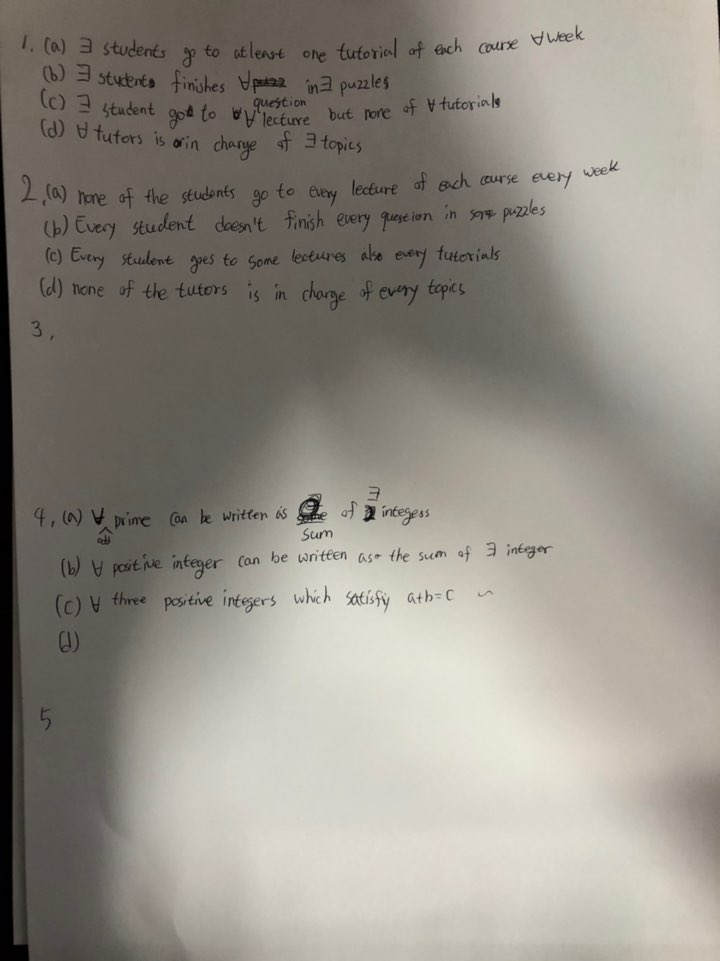 1. (a) ∃ students go to atleast one tutorial of each course ∀ week
(b) ∃ students finishes ∀ question in ∃ puzzles
(c) ∃ student go to ∀ lecture but none of ∀ tutorials
(d) ∀ tutors is in charge of ∃ topics
2. (a) none of the students go to every lecture of each course every week
(b) Every student doesn't finish every question in some puzzles
(c) Every student goes to some lectures also every tutorials
(d) none of the tutors is in charge of every topics
3.
4. (a) ∀ prime can be written as sum of ∃ integers
(b) ∀ positive integer can be written as the sum of ∃ integer
(c) ∀ three positive integers which satisfy a+b=c ~
(d)
5